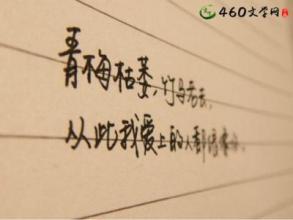 460文学网
青梅枯萎,竹马老去,
从此我爱上的人都